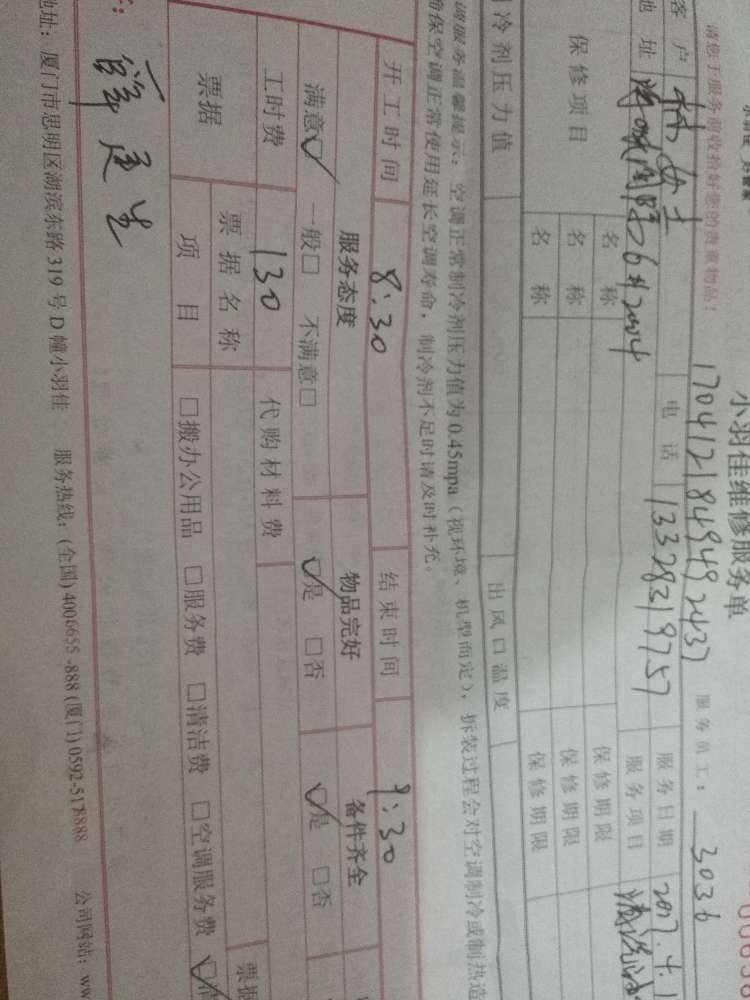 小羽佳维修服务单
请您于服务前收拾好您的贵重物品！
170412184949 2437 服务员工： 3036
客户 女士 电话 13328219757 服务日期 2017.4.1
地址 服务项目
保修项目 名称 保修期限
名称 保修期限
名称 保修期限
制冷剂压力值 出风口温度
调服务温馨提示：空调正常制冷剂压力值为0.45mpa（视环境、机型而定），拆装过程会对空调制冷或制热造
确保空调正常使用延长空调寿命，制冷剂不足时请及时补充。
开工时间 8:30 结束时间 9:30
服务态度 物品完好 备件齐全
满意☑ 一般□ 不满意□ ☑是 □否 ☑是 □否
工时费 130 代购材料费
票据 票据名称 票据
项目 □搬办公用品 □服务费 □清洁费 □空调服务费
地址：厦门市思明区湖滨东路319号D幢小羽佳 服务热线：(全国)4006655-888(厦门)0592-5178888 公司网站：ww